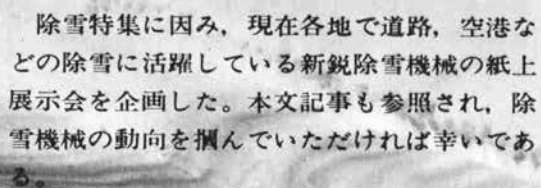 除雪特集に因み，現在各地で道路，空港な
どの除雪に活躍している新鋭除雪機械の紙上
展示会を企画した。本文記事も参照され，除
雪機械の動向を摑んでいただければ幸いであ
る。